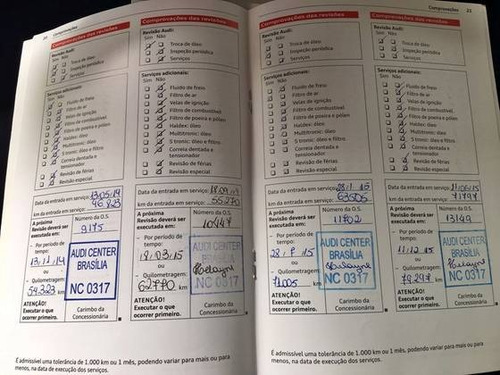 20 Comprovações
Comprovações das revisões
Revisão Audi:
Sim Não
Troca de óleo
Inspeção periódica
Serviços
Serviços adicionais:
Sim Não
Fluido de freio
Filtro de ar
Velas de ignição
Filtro de combustível
Filtro de poeira e pólen
Haldex: óleo
Multitronic: óleo
S tronic: óleo e filtro
Correia dentada e
tensionador
Revisão de férias
Revisão especial
Data da entrada em serviço:
km da entrada em serviço:
A próxima
Revisão deverá ser
executada em:
Número da O.S.
9175
— Por período de
tempo:
13.11.14
ou
— Quilometragem:
km
ATENÇÃO!
Executar o que
ocorrer primeiro.
AUDI CENTER
BRASÍLIA
NC 0317
Carimbo da
Concessionária
Comprovações das revisões
Revisão Audi:
Sim Não
Troca de óleo
Inspeção periódica
Serviços
Serviços adicionais:
Sim Não
Fluido de freio
Filtro de ar
Velas de ignição
Filtro de combustível
Filtro de poeira e pólen
Haldex: óleo
Multitronic: óleo
S tronic: óleo e filtro
Correia dentada e
tensionador
Revisão de férias
Revisão especial
Data da entrada em serviço:
km da entrada em serviço: 55270
A próxima
Revisão deverá ser
executada em:
Número da O.S.
— Por período de
tempo:
18.03.15
ou
— Quilometragem:
62770 km
ATENÇÃO!
Executar o que
ocorrer primeiro.
AUDI CENTER
BRASÍLIA
NC 0317
Carimbo da
Concessionária
É admissível uma tolerância de 1.000 km ou 1 mês, podendo variar para mais ou para
menos, na data de execução dos serviços.
Comprovações 21
Comprovações das revisões
Revisão Audi:
Sim Não
Troca de óleo
Inspeção periódica
Serviços
Serviços adicionais:
Sim Não
Fluido de freio
Filtro de ar
Velas de ignição
Filtro de combustível
Filtro de poeira e pólen
Haldex: óleo
Multitronic: óleo
S tronic: óleo e filtro
Correia dentada e
tensionador
Revisão de férias
Revisão especial
Data da entrada em serviço:
km da entrada em serviço: 63505
A próxima
Revisão deverá ser
executada em:
Número da O.S.
11702
— Por período de
tempo:
ou
— Quilometragem:
71005 km
ATENÇÃO!
Executar o que
ocorrer primeiro.
AUDI CENTER
BRASÍLIA
NC 0317
Carimbo da
Concessionária
Comprovações das revisões
Revisão Audi:
Sim Não
Troca de óleo
Inspeção periódica
Serviços
Serviços adicionais:
Sim Não
Fluido de freio
Filtro de ar
Velas de ignição
Filtro de combustível
Filtro de poeira e pólen
Haldex: óleo
Multitronic: óleo
S tronic: óleo e filtro
Correia dentada e
tensionador
Revisão de férias
Revisão especial
Data da entrada em serviço:
km da entrada em serviço:
A próxima
Revisão deverá ser
executada em:
Número da O.S.
13149
— Por período de
tempo:
11.12.15
ou
— Quilometragem:
km
ATENÇÃO!
Executar o que
ocorrer primeiro.
AUDI CENTER
BRASÍLIA
NC 0317
Carimbo da
Concessionária
É admissível uma tolerância de 1.000 km ou 1 mês, podendo variar para mais ou para
menos, na data de execução dos serviços.